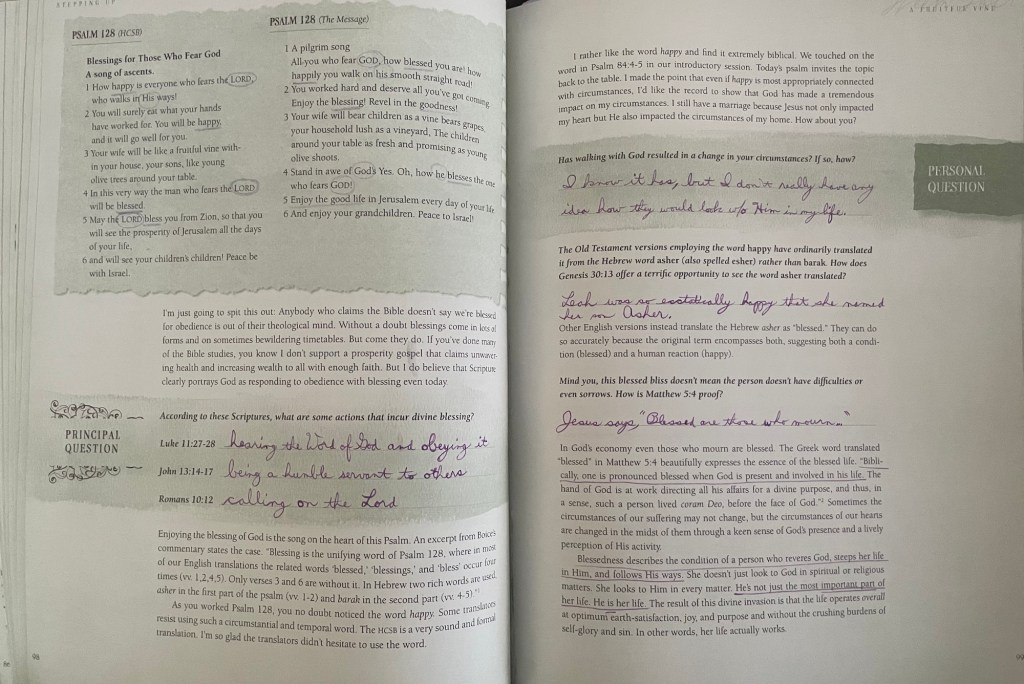 STEPPING UP
PSALM 128 (HCSB)
Blessings for Those Who Fear God
A song of ascents.
1 How happy is everyone who fears the LORD,
who walks in His ways!
2 You will surely eat what your hands
have worked for. You will be happy,
and it will go well for you.
3 Your wife will be like a fruitful vine with-
in your house, your sons, like young
olive trees around your table.
4 In this very way the man who fears the LORD
will be blessed.
5 May the LORD bless you from Zion, so that you
will see the prosperity of Jerusalem all the days
of your life,
6 and will see your children's children! Peace be
with Israel.
PSALM 128 (The Message)
1 A pilgrim song
All you who fear GOD, how blessed you are! how
happily you walk on his smooth straight road!
2 You worked hard and deserve all you've got coming.
Enjoy the blessing! Revel in the goodness!
3 Your wife will bear children as a vine bears grapes,
your household lush as a vineyard, The children
around your table as fresh and promising as young
olive shoots.
4 Stand in awe of God's Yes. Oh, how he blesses the one
who fears GOD!
5 Enjoy the good life in Jerusalem every day of your life
6 And enjoy your grandchildren. Peace to Israel!
I'm just going to spit this out: Anybody who claims the Bible doesn't say we're blessed
for obedience is out of their theological mind. Without a doubt blessings come in lots of
forms and on sometimes bewildering timetables. But come they do. If you've done many
of the Bible studies, you know I don't support a prosperity gospel that claims unwaver-
ing health and increasing wealth to all with enough faith. But I do believe that Scripture
clearly portrays God as responding to obedience with blessing even today.
PRINCIPAL
QUESTION
According to these Scriptures, what are some actions that incur divine blessing?
Luke 11:27-28 hearing the Word of God and obeying it
John 13:14-17 being a humble servant to others
Romans 10:12 calling on the Lord
Enjoying the blessing of God is the song on the heart of this Psalm. An excerpt from Boice's
commentary states the case. "Blessing is the unifying word of Psalm 128, where in most
of our English translations the related words 'blessed,' 'blessings,' and 'bless' occur four
times (vv. 1,2,4,5). Only verses 3 and 6 are without it. In Hebrew two rich words are used,
asher in the first part of the psalm (vv. 1-2) and barak in the second part (vv. 4-5)."1
As you worked Psalm 128, you no doubt noticed the word happy. Some translators
resist using such a circumstantial and temporal word. The HCSB is a very sound and formal
translation. I'm so glad the translators didn't hesitate to use the word.
98
A FRUITFUL VINE
I rather like the word happy and find it extremely biblical. We touched on the
word in Psalm 84:4-5 in our introductory session. Today's psalm invites the topic
back to the table. I made the point that even if happy is most appropriately connected
with circumstances, I'd like the record to show that God has made a tremendous
impact on my circumstances. I still have a marriage because Jesus not only impacted
my heart but He also impacted the circumstances of my home. How about you?
Has walking with God resulted in a change in your circumstances? If so, how?
PERSONAL
QUESTION
I know it has, but I don't really have any
idea how they would look w/o Him in my life.
The Old Testament versions employing the word happy have ordinarily translated
it from the Hebrew word asher (also spelled esher) rather than barak. How does
Genesis 30:13 offer a terrific opportunity to see the word asher translated?
Leah was so ecstatically happy that she named
her son Asher.
Other English versions instead translate the Hebrew asher as "blessed." They can do
so accurately because the original term encompasses both, suggesting both a condi-
tion (blessed) and a human reaction (happy).
Mind you, this blessed bliss doesn't mean the person doesn't have difficulties or
even sorrows. How is Matthew 5:4 proof?
Jesus says, "Blessed are those who mourn."
In God's economy even those who mourn are blessed. The Greek word translated
"blessed" in Matthew 5:4 beautifully expresses the essence of the blessed life. "Bibli-
cally, one is pronounced blessed when God is present and involved in his life. The
hand of God is at work directing all his affairs for a divine purpose, and thus, in
a sense, such a person lived coram Deo, before the face of God."2 Sometimes the
circumstances of our suffering may not change, but the circumstances of our hearts
are changed in the midst of them through a keen sense of God's presence and a lively
perception of His activity.
Blessedness describes the condition of a person who reveres God, steeps her life
in Him, and follows His ways. She doesn't just look to God in spiritual or religious
matters. She looks to Him in every matter. He's not just the most important part of
her life. He is her life. The result of this divine invasion is that the life operates overall
at optimum earth-satisfaction, joy, and purpose and without the crushing burdens of
self-glory and sin. In other words, her life actually works.
99